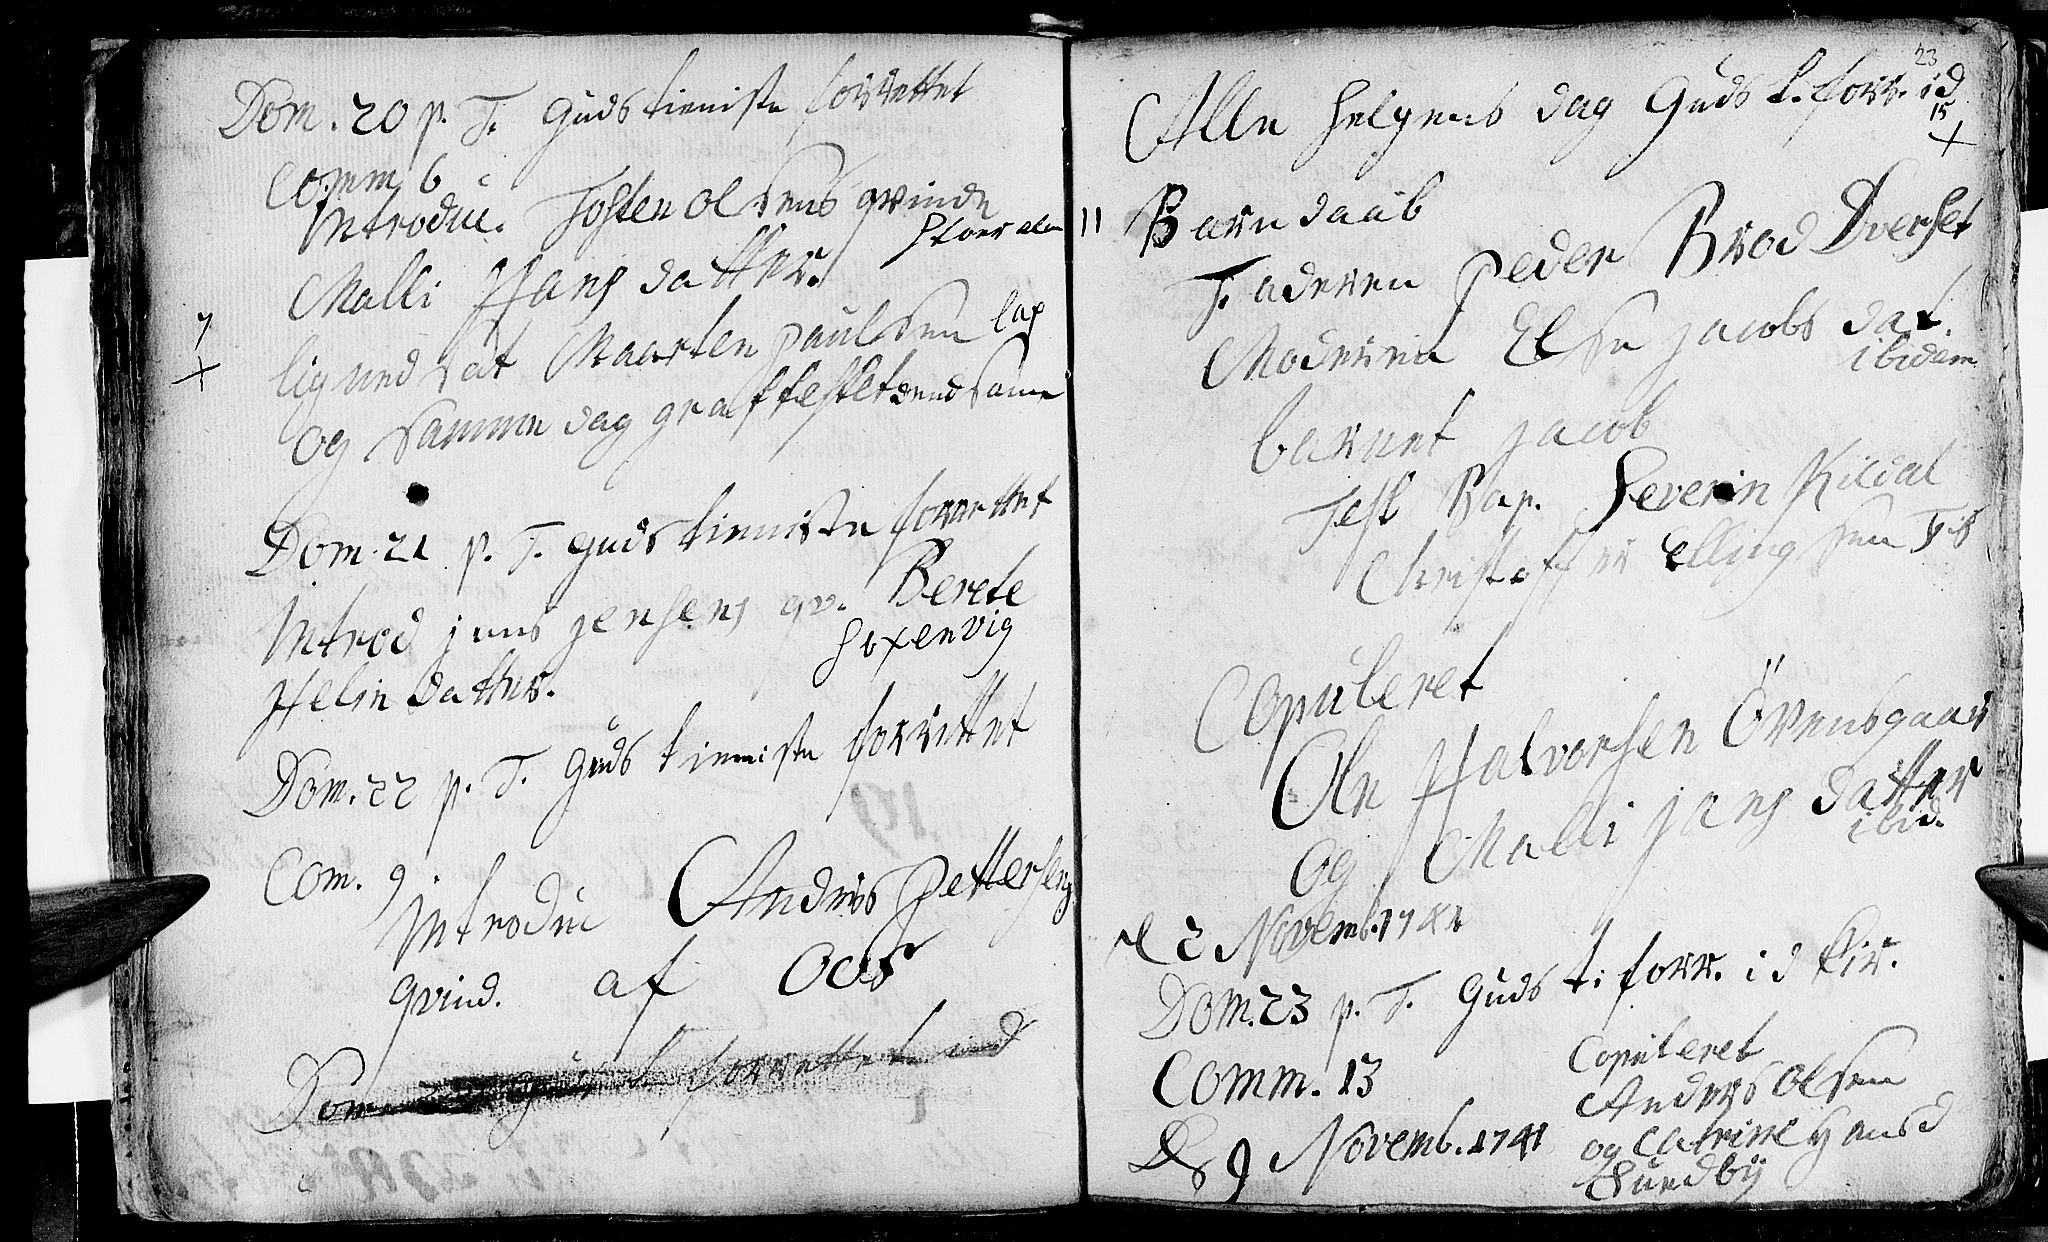 Dom. 20 p. T. Guds tieniste forrettet
Comm 6
Introduc. Tosten Olsens qvinde
Malli Hans datter.
7
lig ned sat Maarten Paulsen lap
og samme dag graffestet
Dom. 21 p. T. Guds tieniste forrettet
Introd jens jensens qv. Berete
Helje datter.
Dom. 22 p. T. Guds tieniste forrettet
Com. 9.
Introduc Anders Pettersens
qvind. af Oes
Dom forrettet ind
23
Alle Helgens dag Guds t. forr. id
15
11 Barn daab
Faderen Peder Brod Dverset
Moderen Else Jacobs dat.
ibidem
barnet Jacob
Test Bap. Severin Kildal
Christoffer Ellingsen
Copuleret
Ole Halvorsen Övensgaar
og Malli jans datter
ibid.
d 2 Novemb. 1741
Dom. 23 p. T. Guds t. forr. id kir.
Comm. 13
Copuleret
Anders Olsen
og Catrine Hansd
Sundby
D 9 Novemb. 1741